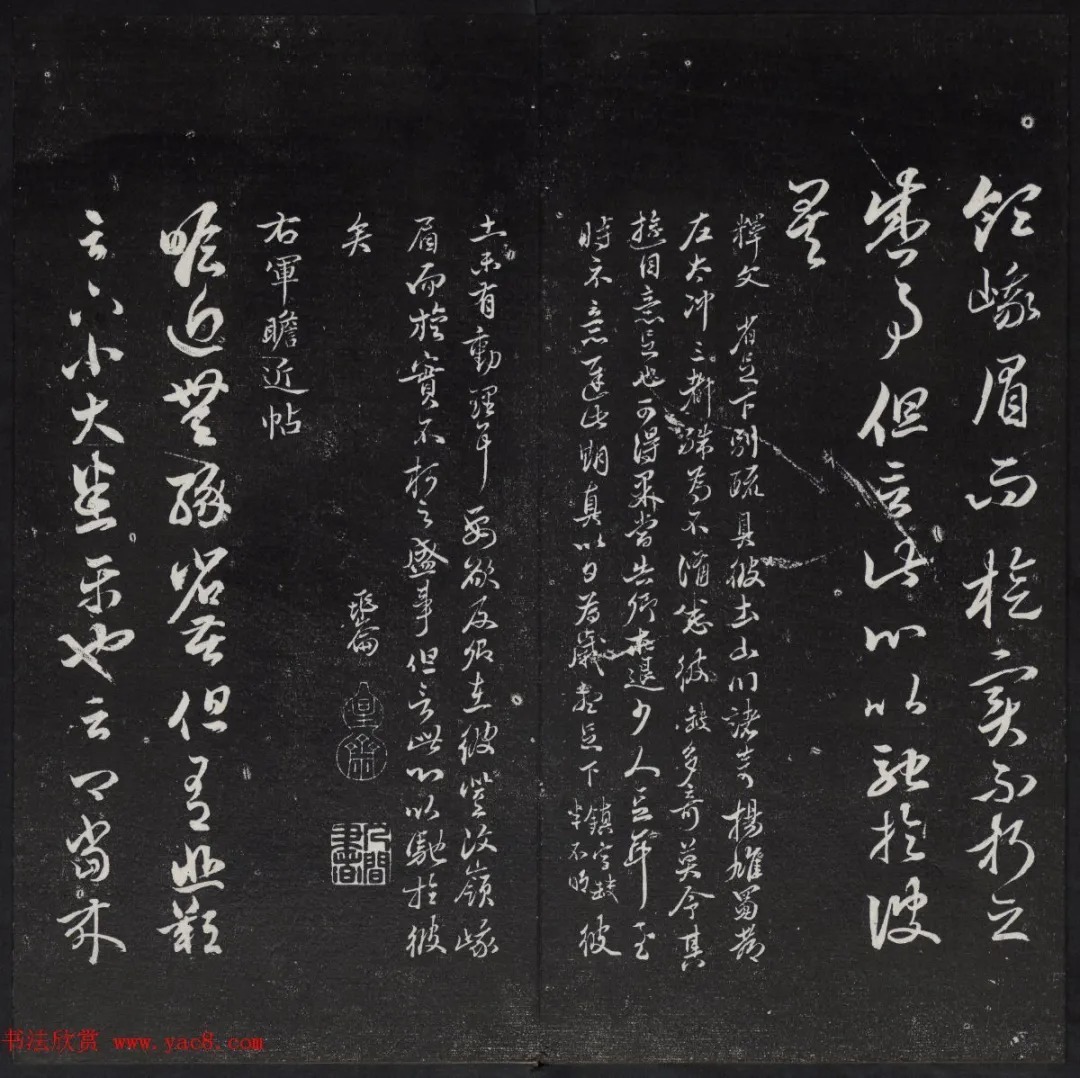 領峨眉而旋實不朽之
盛事但言此心以馳於彼
矣
釋文 省足下別疏具彼土山川諸奇楊雄蜀都
左太沖三都殊為不備悉彼故多奇益令其
遊目意足也可得果當告卿求迎少人足耳至
時示意遲此期真以日為歲想足下鎮字缺半不明彼
土未有動理耳要欲及卿在彼登汶嶺峨
眉而旋實不朽之盛事但言此心以馳於彼
矣
右軍瞻近帖
瞻近無緣省苦但有悲歎
足下小大悉平也云卿當來
書法欣賞 www.yac8.com